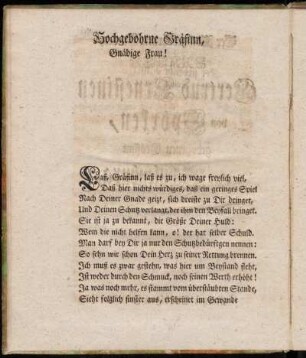 Hochgebohrne Gräfinn,
Gnädige Frau!
Laß, Gräfinn, laß es zu, ich wage freylich viel,
Daß hier nichts würdiges, daß ein geringes Spiel
Nach Deiner Gnade geizt, sich dreiste zu Dir dringet,
Und Deinen Schutz verlangt, der ihm den Beyfall bringet.
Sie ist ja zu bekannt, die Größe Deiner Huld:
Wem die nicht helfen kann, o! der hat selber Schuld.
Man darf bey Dir ja nur den Schutzbedürftgen nennen:
So sehn wir schon Dein Herz zu seiner Rettung brennen.
Ich muß es zwar gestehn, was hier um Beystand fleht,
Ist weder durch den Schmuck, noch seinen Werth erhöht!
Ja was noch mehr, es stammt vom überstäubten Stande,
Sieht folglich finster aus, erscheinet im Gewande